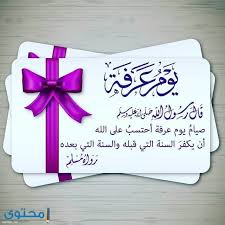 يوم عرفة
قال رسول الله صلى الله عليه وسلم
صيام يوم عرفة أحتسب على الله
أن يكفر السنة التي قبله والسنة التي بعده
رواه مسلم
محتوى